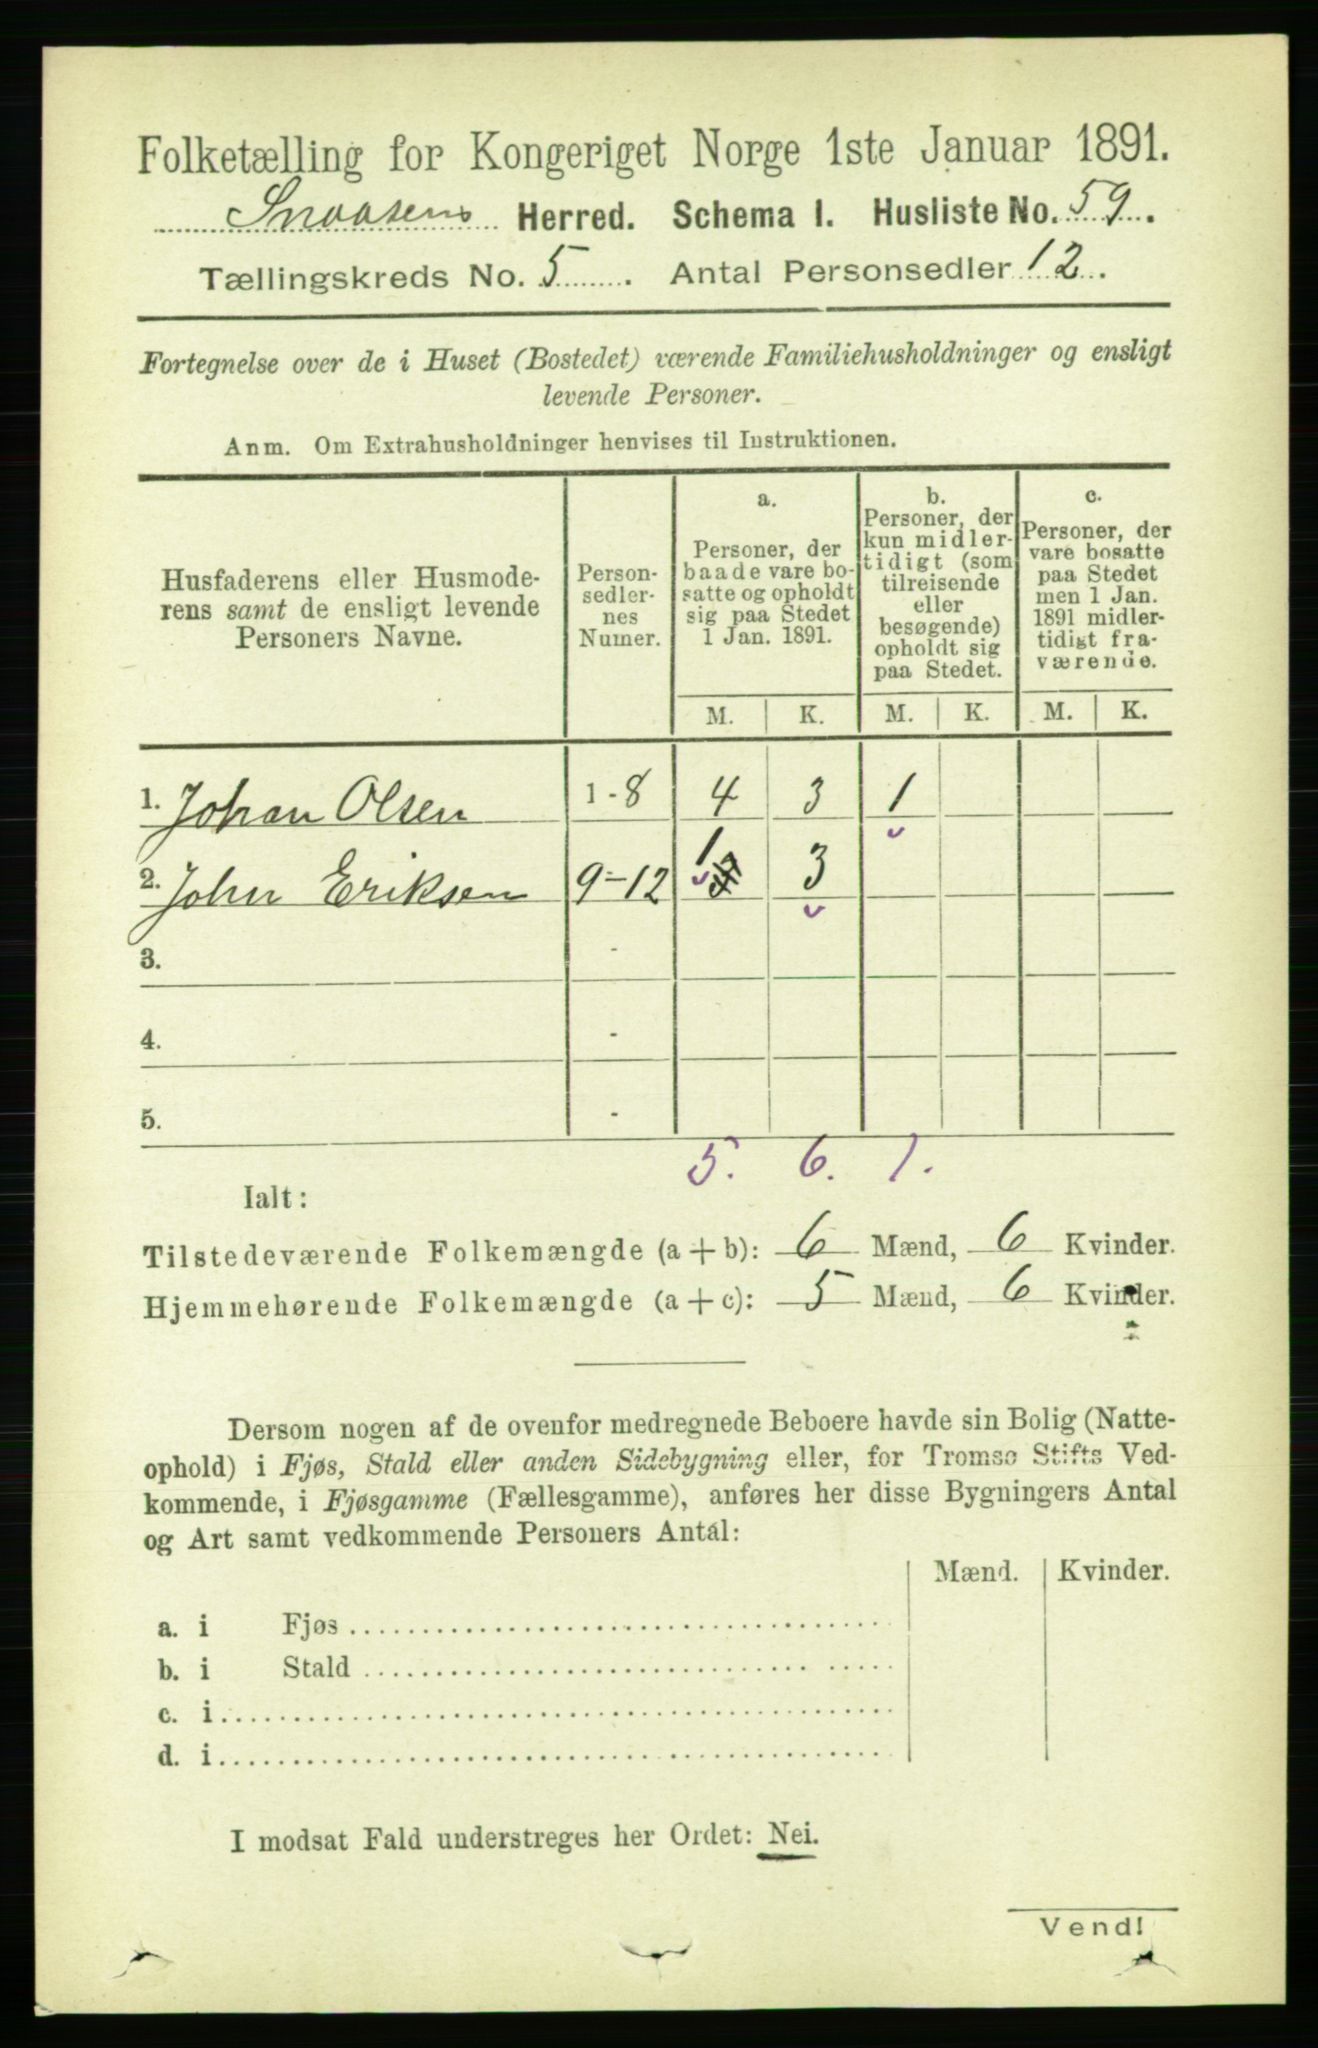 Folketælling for Kongeriget Norge 1ste Januar 1891.
Snaasens Herred. Schema I. Husliste No. 59.
Tællingskreds No. 5. Antal Personsedler 12.
Fortegnelse over de i Huset (Bostedet) værende Familiehusholdninger og ensligt
levende Personer.
Anm. Om Extrahusholdninger henvises til Instruktionen.
Husfaderens eller Husmode-
rens samt de ensligt levende
Personers Navne.
Person-
sedler-
nes
Numer.
a.
Personer, der
baade vare bo-
satte og opholdt
sig paa Stedet
1 Jan. 1891.
b.
Personer, der
kun midler-
tidigt (som
tilreisende
eller
besøgende)
opholdt sig
paa Stedet.
c.
Personer, der
vare bosatte
paa Stedet
men 1 Jan.
1891 midler-
tidigt fra-
værende.
M. K. M. K. M. K.
1. Johan Olsen 1-8 4 3 1
2. John Eriksen 9-12 1 3
3. -
4. -
5. -
5. 6. 1.
Ialt:
Tilstedeværende Folkemængde (a + b): 6 Mænd, 6 Kvinder.
Hjemmehørende Folkemængde (a + c): 5 Mænd, 6 Kvinder.
Dersom nogen af de ovenfor medregnede Beboere havde sin Bolig (Natte-
ophold) i Fjøs, Stald eller anden Sidebygning eller, for Tromsø Stifts Ved-
kommende, i Fjøsgamme (Fællesgamme), anføres her disse Bygningers Antal
og Art samt vedkommende Personers Antal:
Mænd. Kvinder.
a. i Fjøs
b. i Stald
c. i
d. i
I modsat Fald understreges her Ordet: Nei.
Vend!